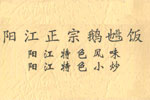 阳江正宗鹅乸饭
阳江特色风味
阳江特色小炒